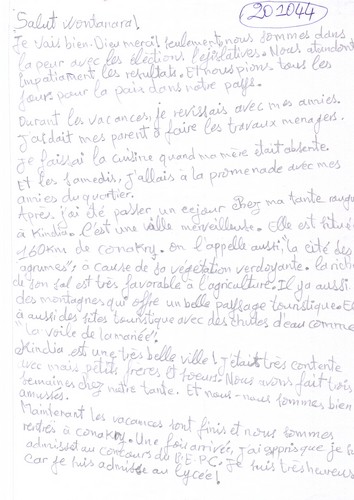 201044
Salut Nordanara!
Je vais bien. Dieu merci! Seulement nous sommes dans
la peur avec les élections législatives. Nous attendons
Impatiament les resultats. Et nous prions tous les
jours pour la paix dans notre pays.
Durant les vacances, je revissais avec mes amies.
J'aidait mes parent à faire les travaux menagers.
Je faisai la cuisine quand ma mère était absente.
Et les samedis, j'allais à la promenade avec mes
amies du quartier.
Après, j'ai été passer un sejour chez ma tante
à Kindia. C'est une ville merveilleuse. Elle est située
160Km de conakry. On l'appelle aussi "la cité des
agrumes", à cause de sa végétation verdoyante. la rich
de son sol est très favorable à l'agriculture. Il ya aussi
des montagnes qui offre un belle paysage touristique. Et
à aussi des sites touristique avec des chutes d'eau comme
"la voile de la mariée".
Kindia est une très belle ville! j'était très contente
avec mais petits freres et soeur. Nous avons fait trois
semaines chez notre tante. Et nous-nous sommes bien
amusses.
Maintenant les vacances sont finis et nous sommes
rentrés à conakry. Une fois arrivée, j'ai appris que je su
admise au concours du B.E.P.C. Je suis très heureuse
car je suis admise au lycée!